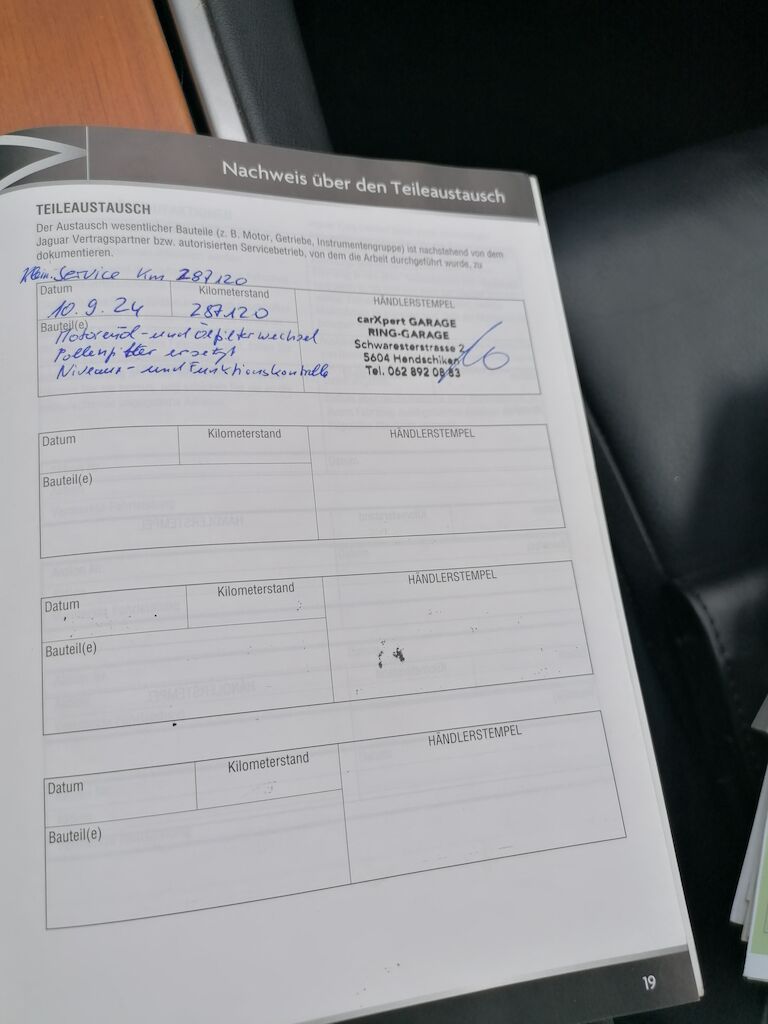 Nachweis über den Teileaustausch
TEILEAUSTAUSCH
Der Austausch wesentlicher Bauteile (z. B. Motor, Getriebe, Instrumentengruppe) ist nachstehend von dem
Jaguar Vertragspartner bzw. autorisierten Servicebetrieb, von dem die Arbeit durchgeführt wurde, zu
dokumentieren.
Klein. Service Km 287120
Datum Kilometerstand HÄNDLERSTEMPEL
10.9.24 287120
Bauteil(e)
Motorenöl- und Ölfilterwechsel
Pollenfilter ersetzt
Niveau- und Funktionskontrolle
carXpert GARAGE
RING-GARAGE
Schwaresterstrasse 2
5604 Hendschiken
Tel. 062 892 08 83
Datum Kilometerstand HÄNDLERSTEMPEL
Bauteil(e)
Datum Kilometerstand HÄNDLERSTEMPEL
Bauteil(e)
Datum Kilometerstand HÄNDLERSTEMPEL
Bauteil(e)
19